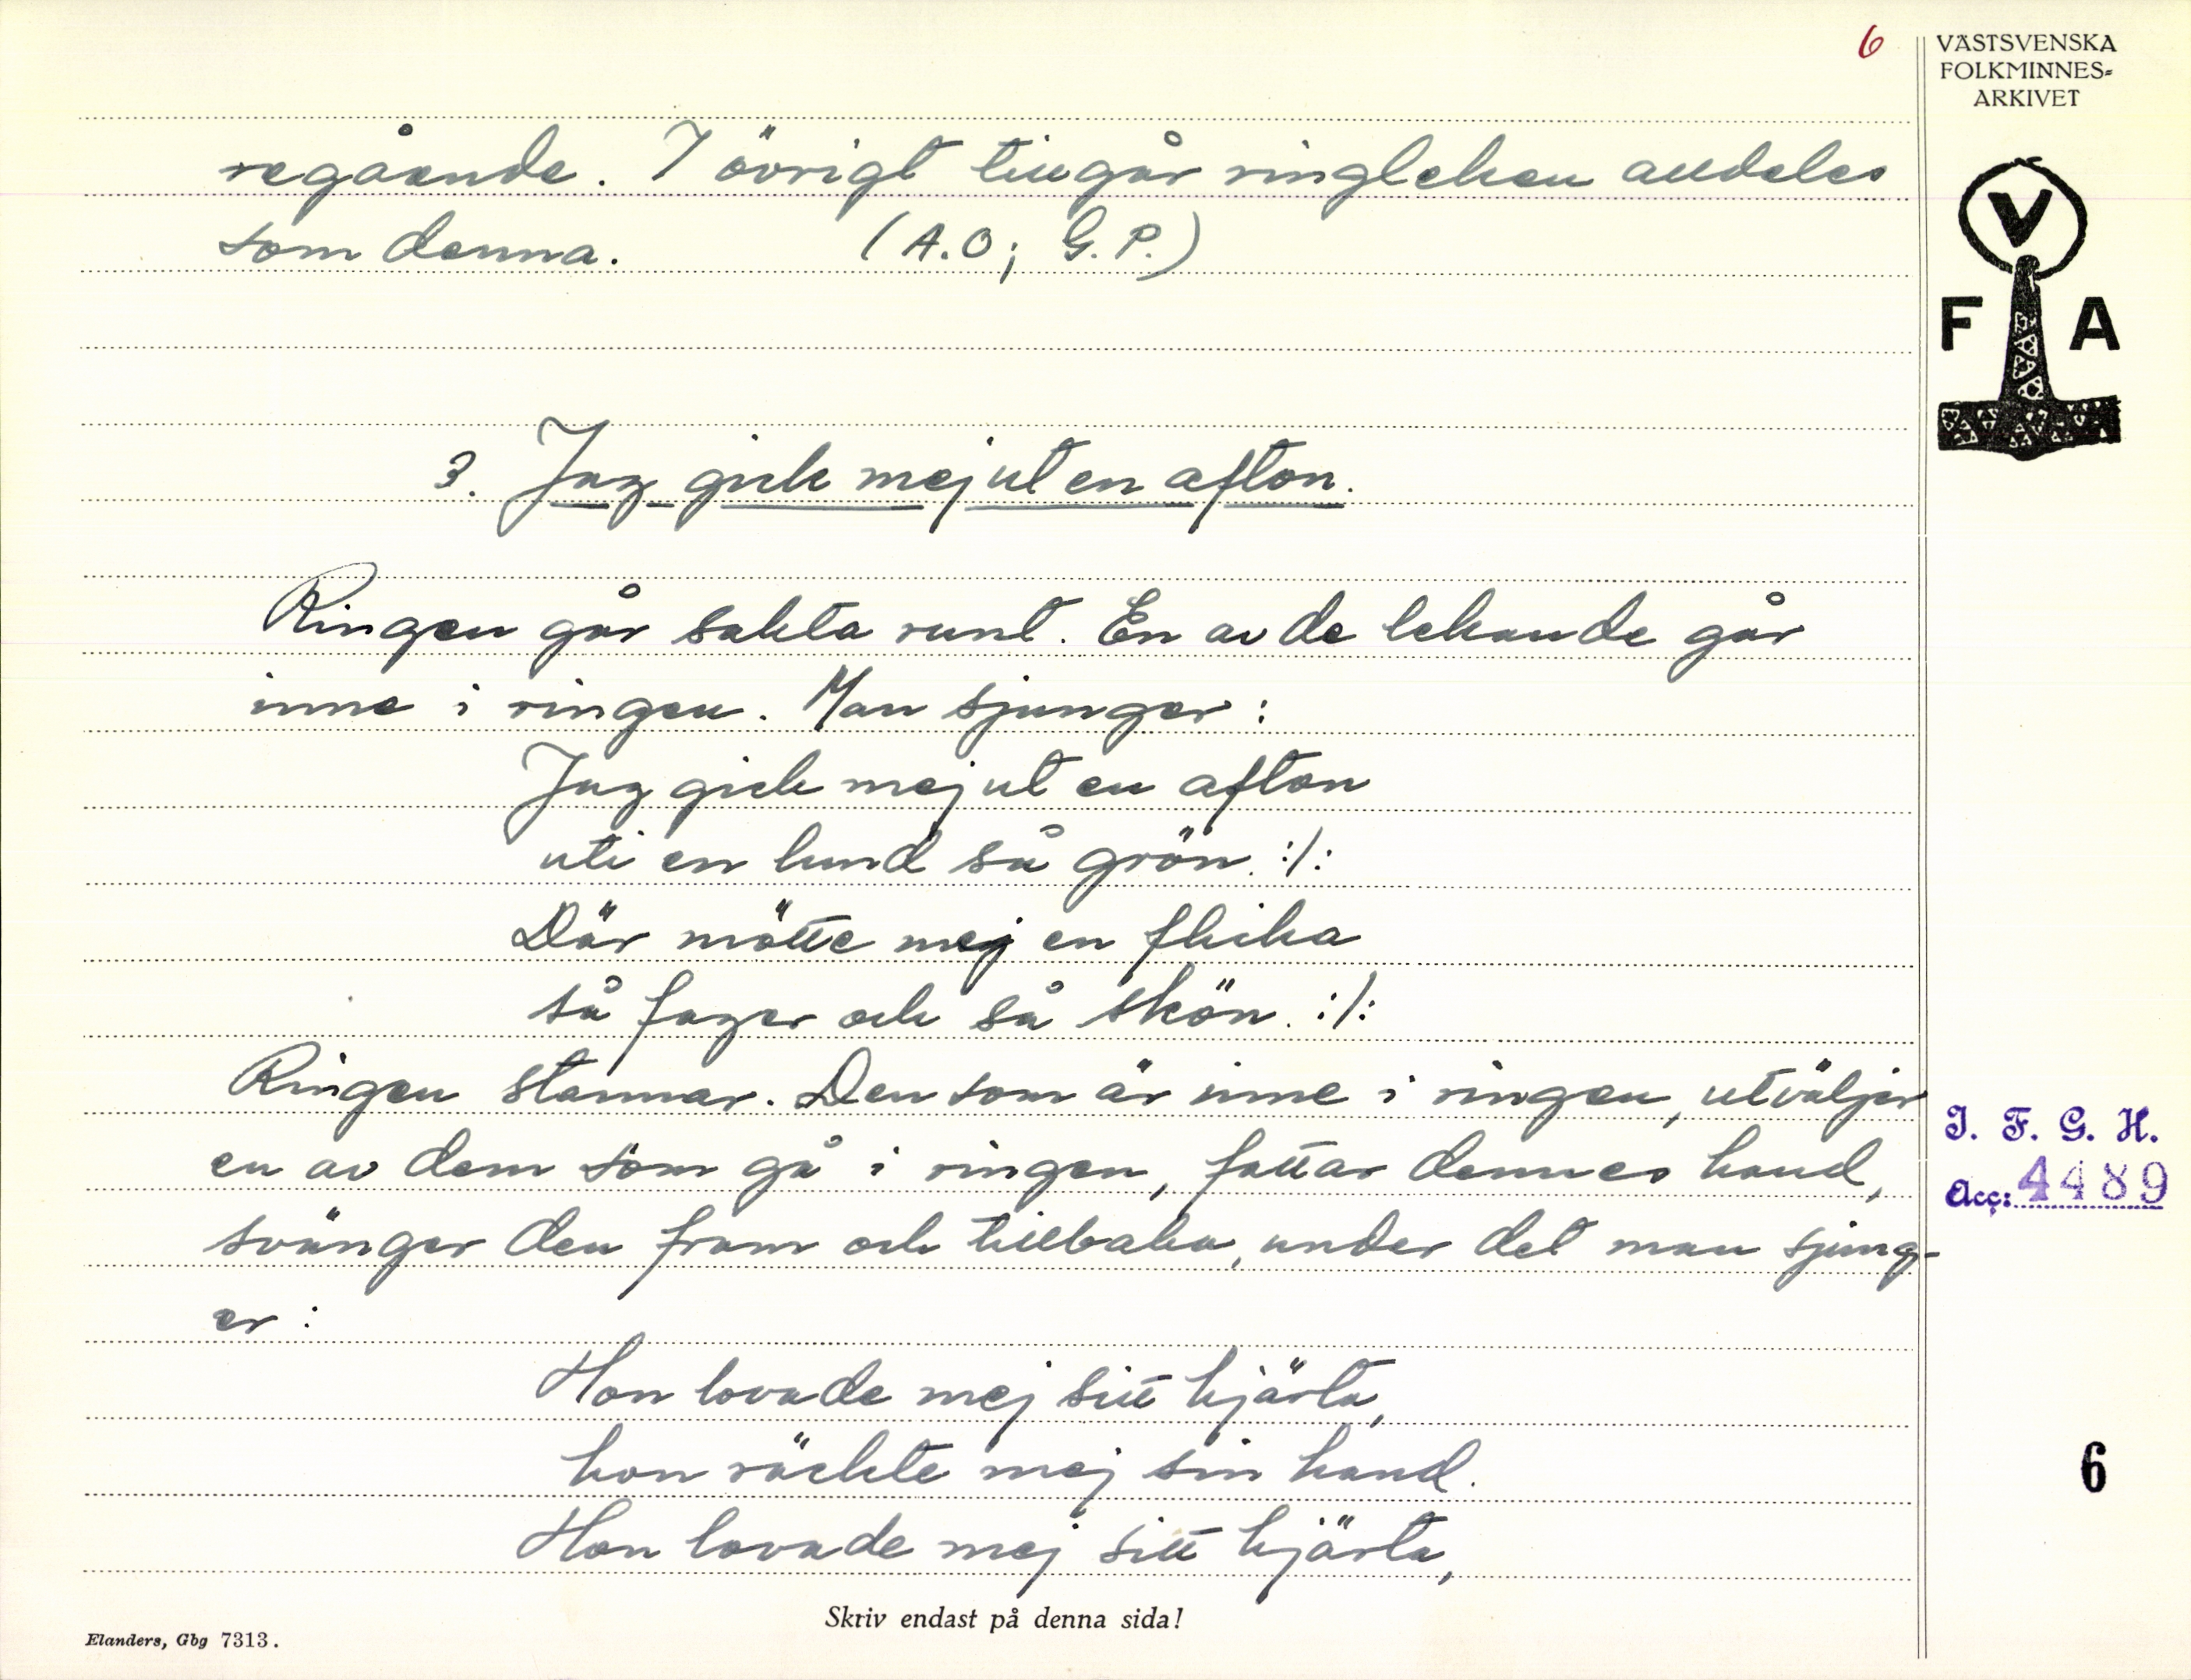 6
VÄSTSVENSKA
FOLKMINNES-
ARKIVET
V
F A
regående. I övrigt tillgår ringleken alldeles
som denna. (A.O; G.P.)
3. Jag gick mej ut en afton.
Ringen går sakta runt. En av de lekande går
inne i ringen. Man sjunger:
Jag gick mej ut en afton
uti en lund så grön. :/:
Där mötte mej en flicka
så fager och så skön. :/:
Ringen stannar. Den som är inne i ringen, utväljer
en av dem som gå i ringen, fattar dennes hand,
svänger den fram och tillbaka, under det man sjung-
er:
Hon lovade mej sitt hjärta,
hon räckte mej sin hand.
Hon lovade mej sitt hjärta,
I. F. G. H.
Acc: 4489
6
Skriv endast på denna sida!
Elanders, Gbg 7313.